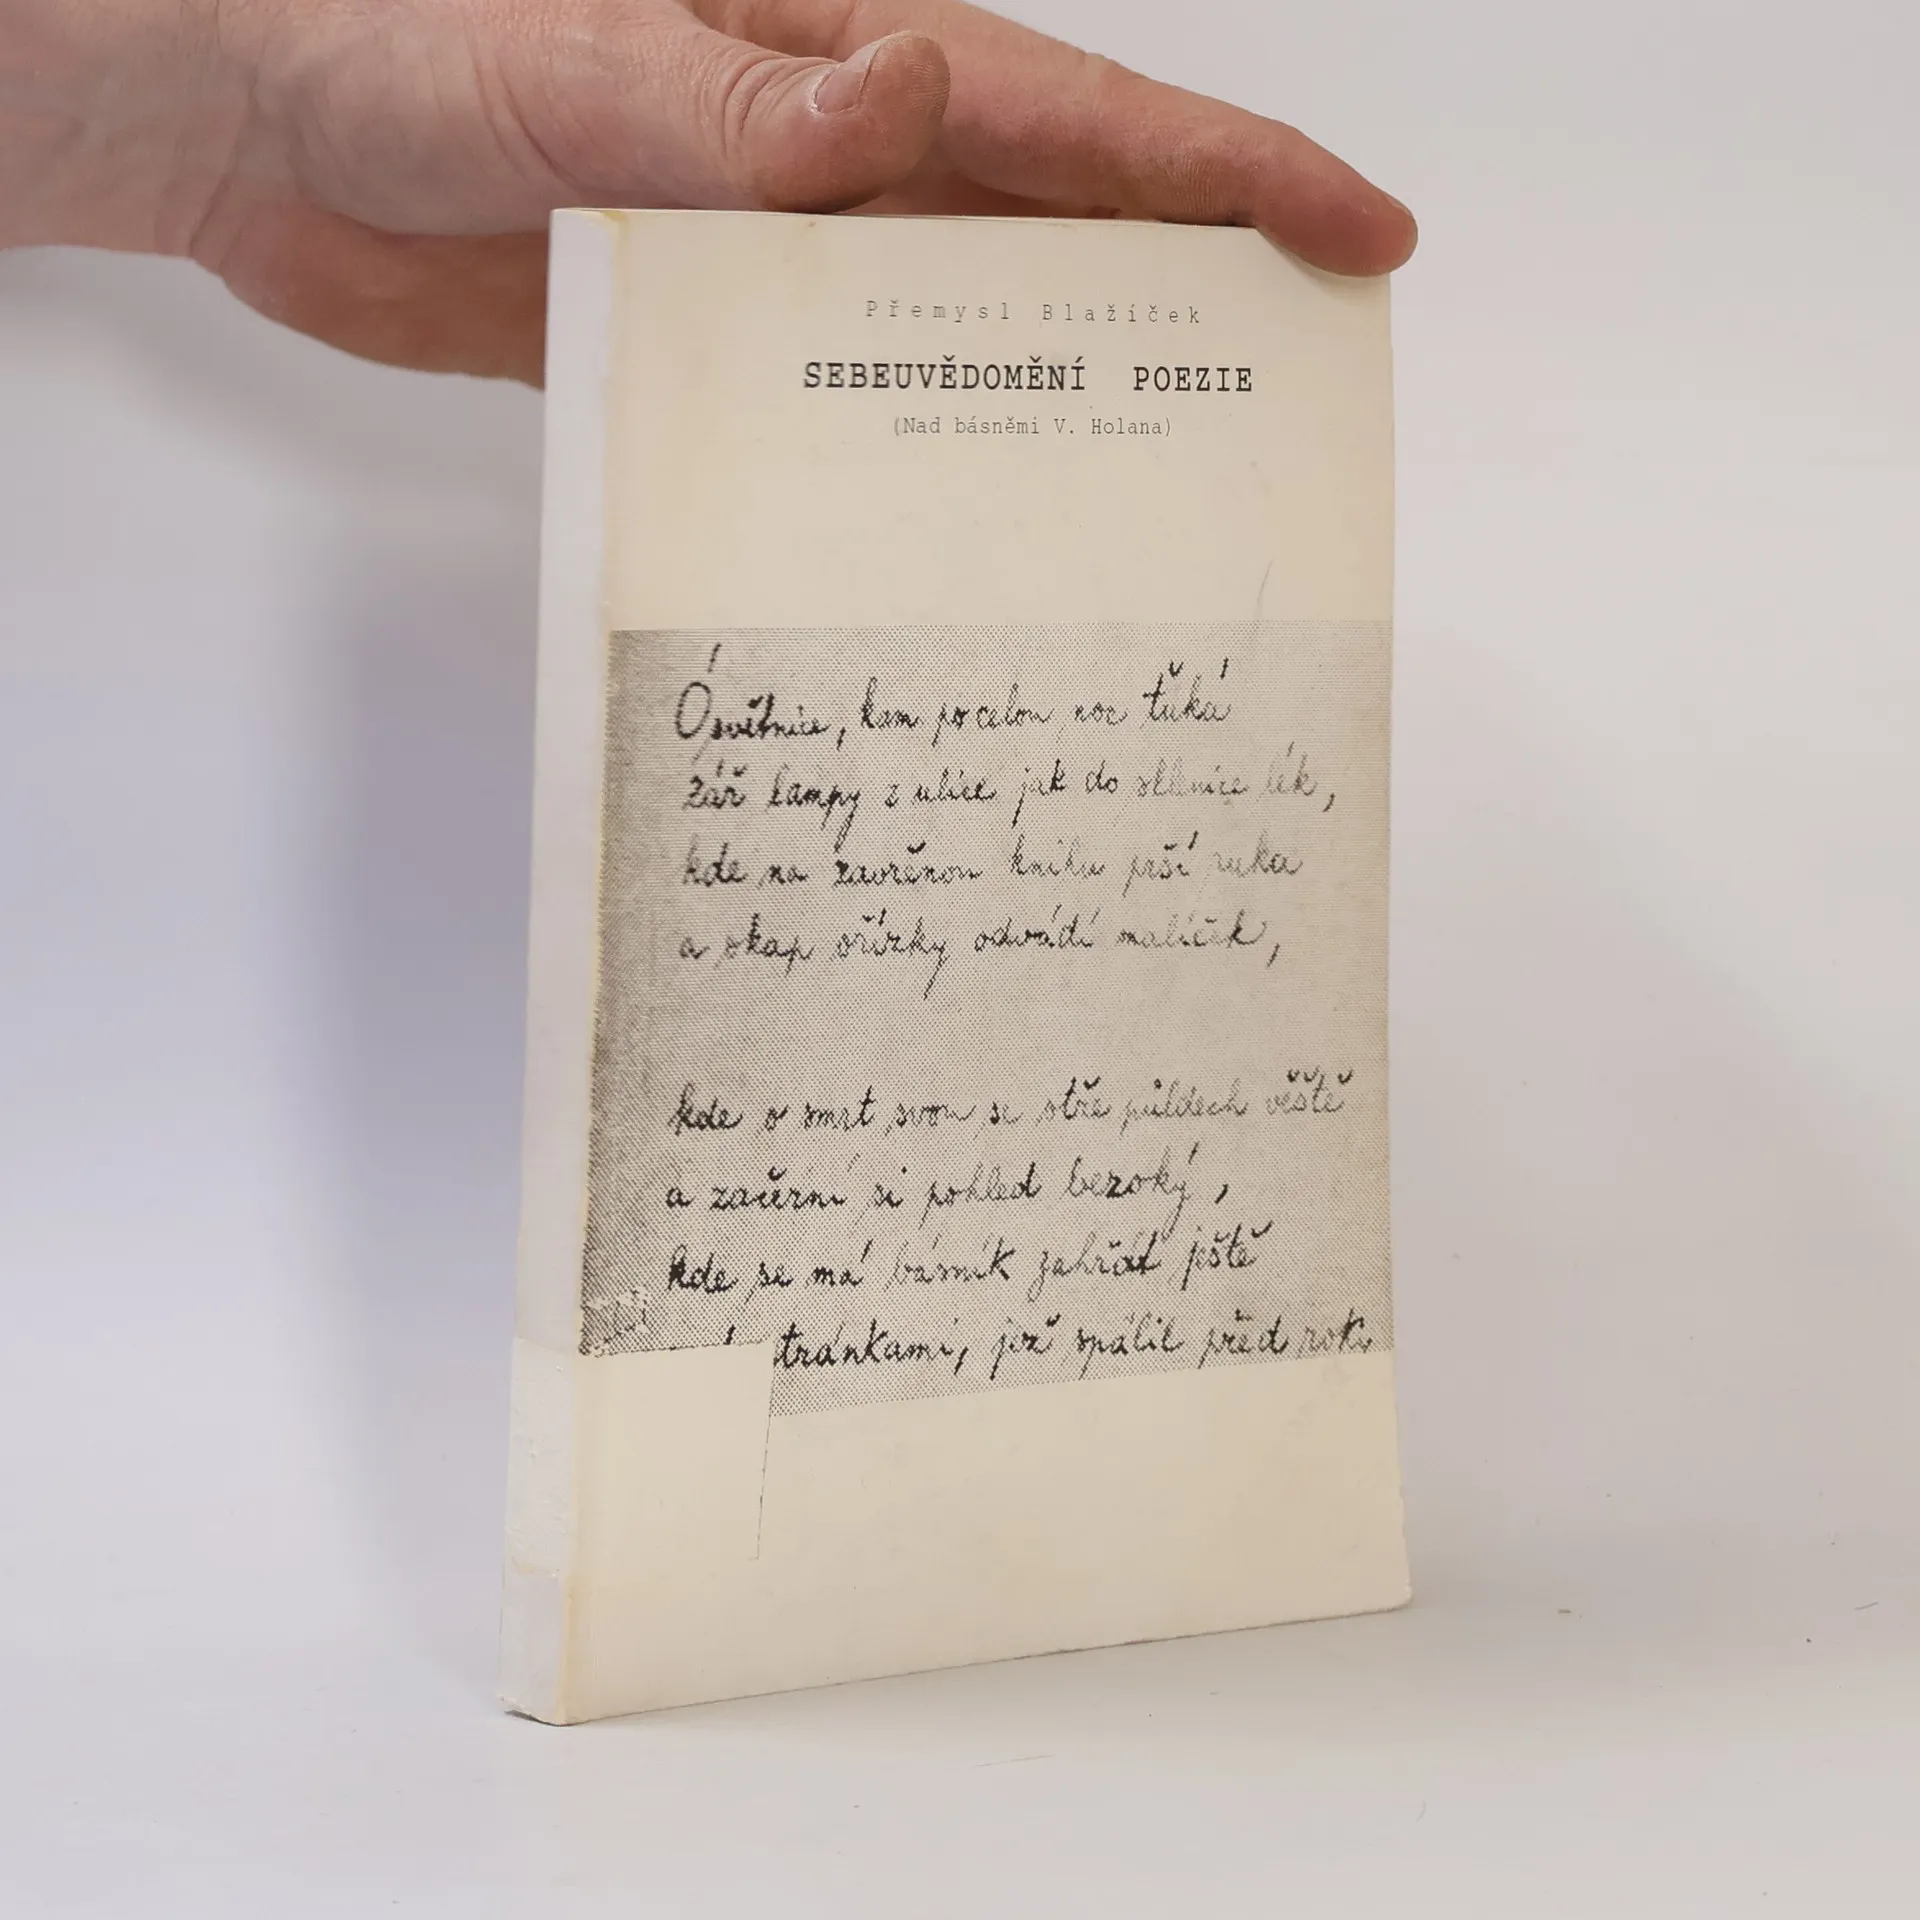 Přemysl Blažíček
SEBEUVĚDOMĚNÍ POEZIE
(Nad básněmi V. Holana)
Ó světnice, kam po celou noc ťuká
zář lampy z ulice jak do sklenice lék,
kde na zavřenou knihu prší ruka
a okap ořízky odvádí malíček,
kde o smrt svou se otře půldech věště
a začerní si pohled bezoký,
kde se má básník zahřát ještě
tránkami, jež spálil před roky